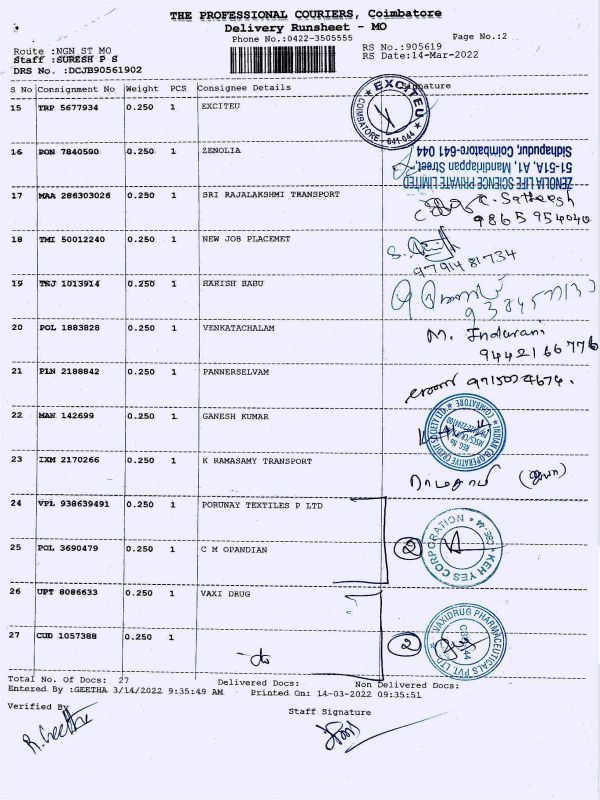 THE PROFESSIONAL COURIERS, Coimbatore
Delivery Runsheet - MO
Phone No.:0422-3505555
Page No.:2
Route :NGN ST MO
RS No.:905619
Staff :SURESH P S
RS Date:14-Mar-2022
DRS No. :DCJB90561902
S No Consignment No Weight PCS Consignee Details Signature
15 TRP 5677934 0.250 1 EXCITEU
EXCITEU COIMBATORE - 641 044
16 PON 7840590 0.250 1 ZENOLIA
ZENOLIA LIFE SCIENCE PRIVATE LIMITED
51-51A, A1, Mandiriappan Street,
Sidhapudur, Coimbatore-641 044
17 MAA 286303026 0.250 1 SRI RAJALAKSHMI TRANSPORT
C. Satheesh
9865954040
18 TMI 50012240 0.250 1 NEW JOB PLACEMET
9791481734
19 TNJ 1013914 0.250 1 HARISH BABU
20 POL 1883828 0.250 1 VENKATACHALAM
M. Indurani
9442166776
21 PLN 2188842 0.250 1 PANNERSELVAM
22 MAN 142699 0.250 1 GANESH KUMAR
23 IXM 2170266 0.250 1 K RAMASAMY TRANSPORT
24 VPL 938639491 0.250 1 PORUNAY TEXTILES P LTD
25 POL 3690479 0.250 1 C M OPANDIAN
2
KEH YES CORPORATION CBE-44
26 UPT 8086633 0.250 1 VAXI DRUG
27 CUD 1057388 0.250 1
2
VAXIDRUG PHARMACEUTICALS PVT. LTD
Total No. Of Docs: 27 Delivered Docs: Non Delivered Docs:
Entered By :GEETHA 3/14/2022 9:35:49 AM Printed On: 14-03-2022 09:35:51
Verified By
Staff Signature
R. Geetha